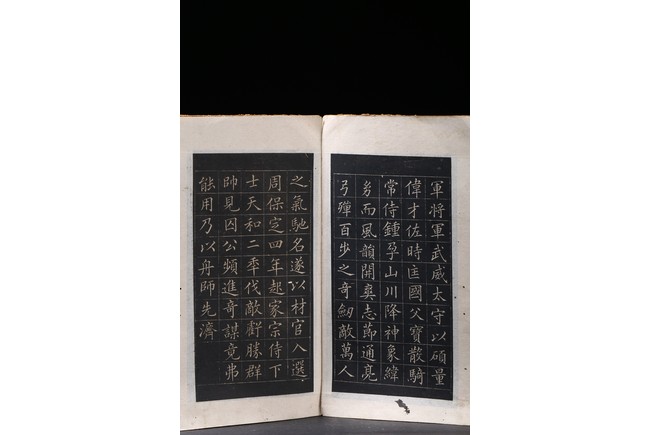 軍將軍武威太守以碩量
偉才佐時匡國父寶散騎
常侍鍾孕山川降神象緯
多而風韻開爽志節通亮
弓殫百步之奇劒敵萬人
之氣馳名遂以材官入選
周保定四年起家宗侍下
士天和二年伐敵衝勝群
帥見囚公頻進奇謀竟弗
能用乃以舟師先濟